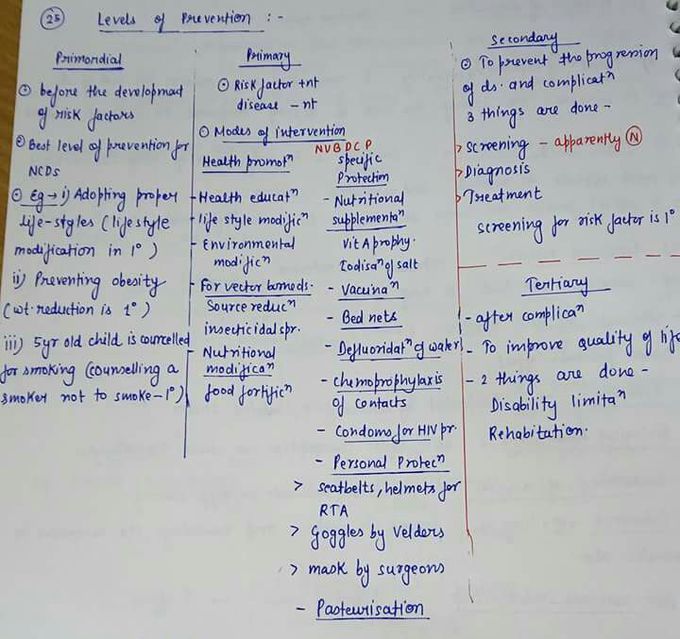 25 Levels of Prevention :-
Primordial
⊙ before the development
of risk factors
⊙ Best level of prevention for
NCDs
⊙ Eg → i) Adopting proper
life-styles (lifestyle
modification in 1°)
ii) Preventing obesity
(wt. reduction is 1°)
iii) 5yr old child is councelled
for smoking (counselling a
smoker not to smoke - 1°)
Primary
⊙ Risk factor +nt
disease - nt
⊙ Modes of intervention
Health promotⁿ
- Health educatⁿ
- life style modificⁿ
- Environmental
modificⁿ
- For vector borneds.
Source reducⁿ
insecticidal spr.
- Nutritional
modificaⁿ
food fortificⁿ
NVBDCP
specific
Protection
- Nutritional
supplementaⁿ
Vit A prophy.
Iodisaⁿ of salt
- Vaccinaⁿ
- Bed nets
- Defluoridatⁿ of water
- chemoprophylaxis
of contacts
- Condoms for HIV pr.
- Personal Protecⁿ
> seatbelts, helmets for
RTA
> Goggles by Velders
> mask by surgeons
- Pasteurisation
Secondary
⊙ To prevent the progression
of ds. and complicatⁿ
3 things are done -
> Screening - apparently N
> Diagnosis
> Treatment
screening for risk factor is 1°
Tertiary
- after complicaⁿ
- To improve quality of life
- 2 things are done -
Disability limitaⁿ
Rehabitation.